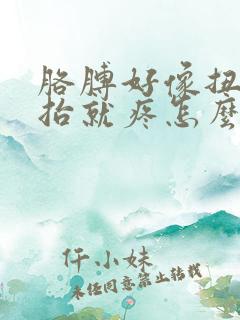 胳膊好像扭
抬就疼怎麼
仟小妹
未经同意禁止转载